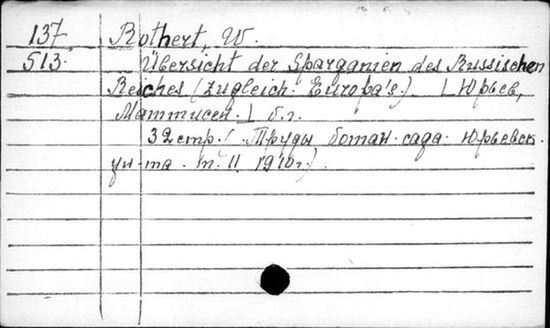 137 Rothert, W.
513. Übersicht der Sparganien des Russischen
Reiches (zugleich Europa's.) [Юрьев,
Маттисен.] б.г.
32 стр. (Труды ботан. сада Юрьевск.
ун-та. т. 11 1910 г.)